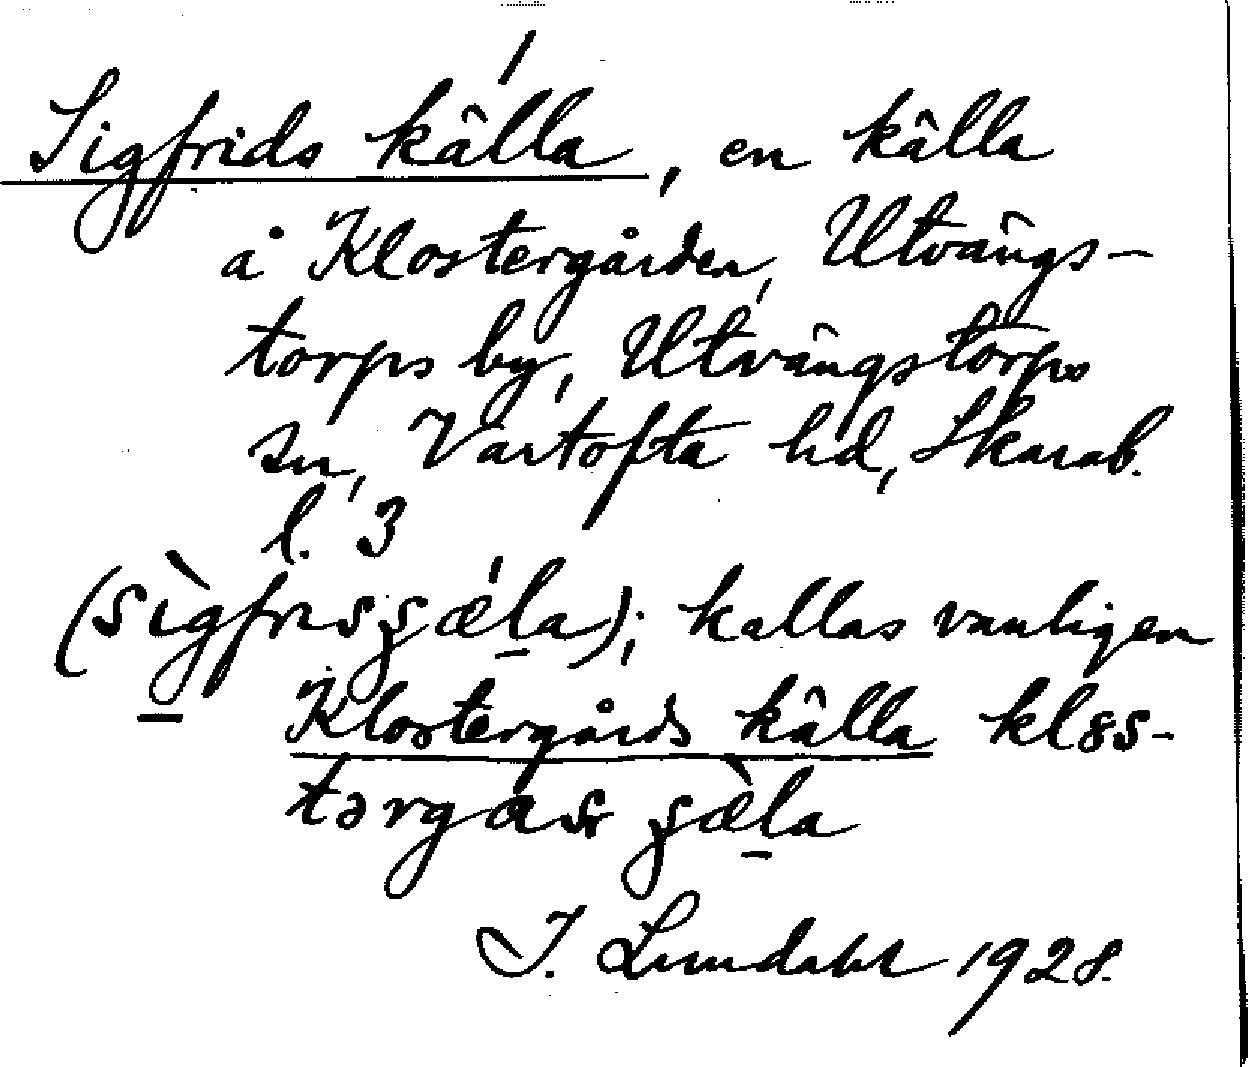 Sigfrids källa, en källa
å Klostergården, Utvängs-
torps by, Utvängstorps
sn, Vartofta hd, Skarab.
l. 3
(sìgfrisʂæ̀la); kallas vanligen
Klostergårds källa klɷs-
tərgas ʂæ̀la
I. Lundahl 1928.